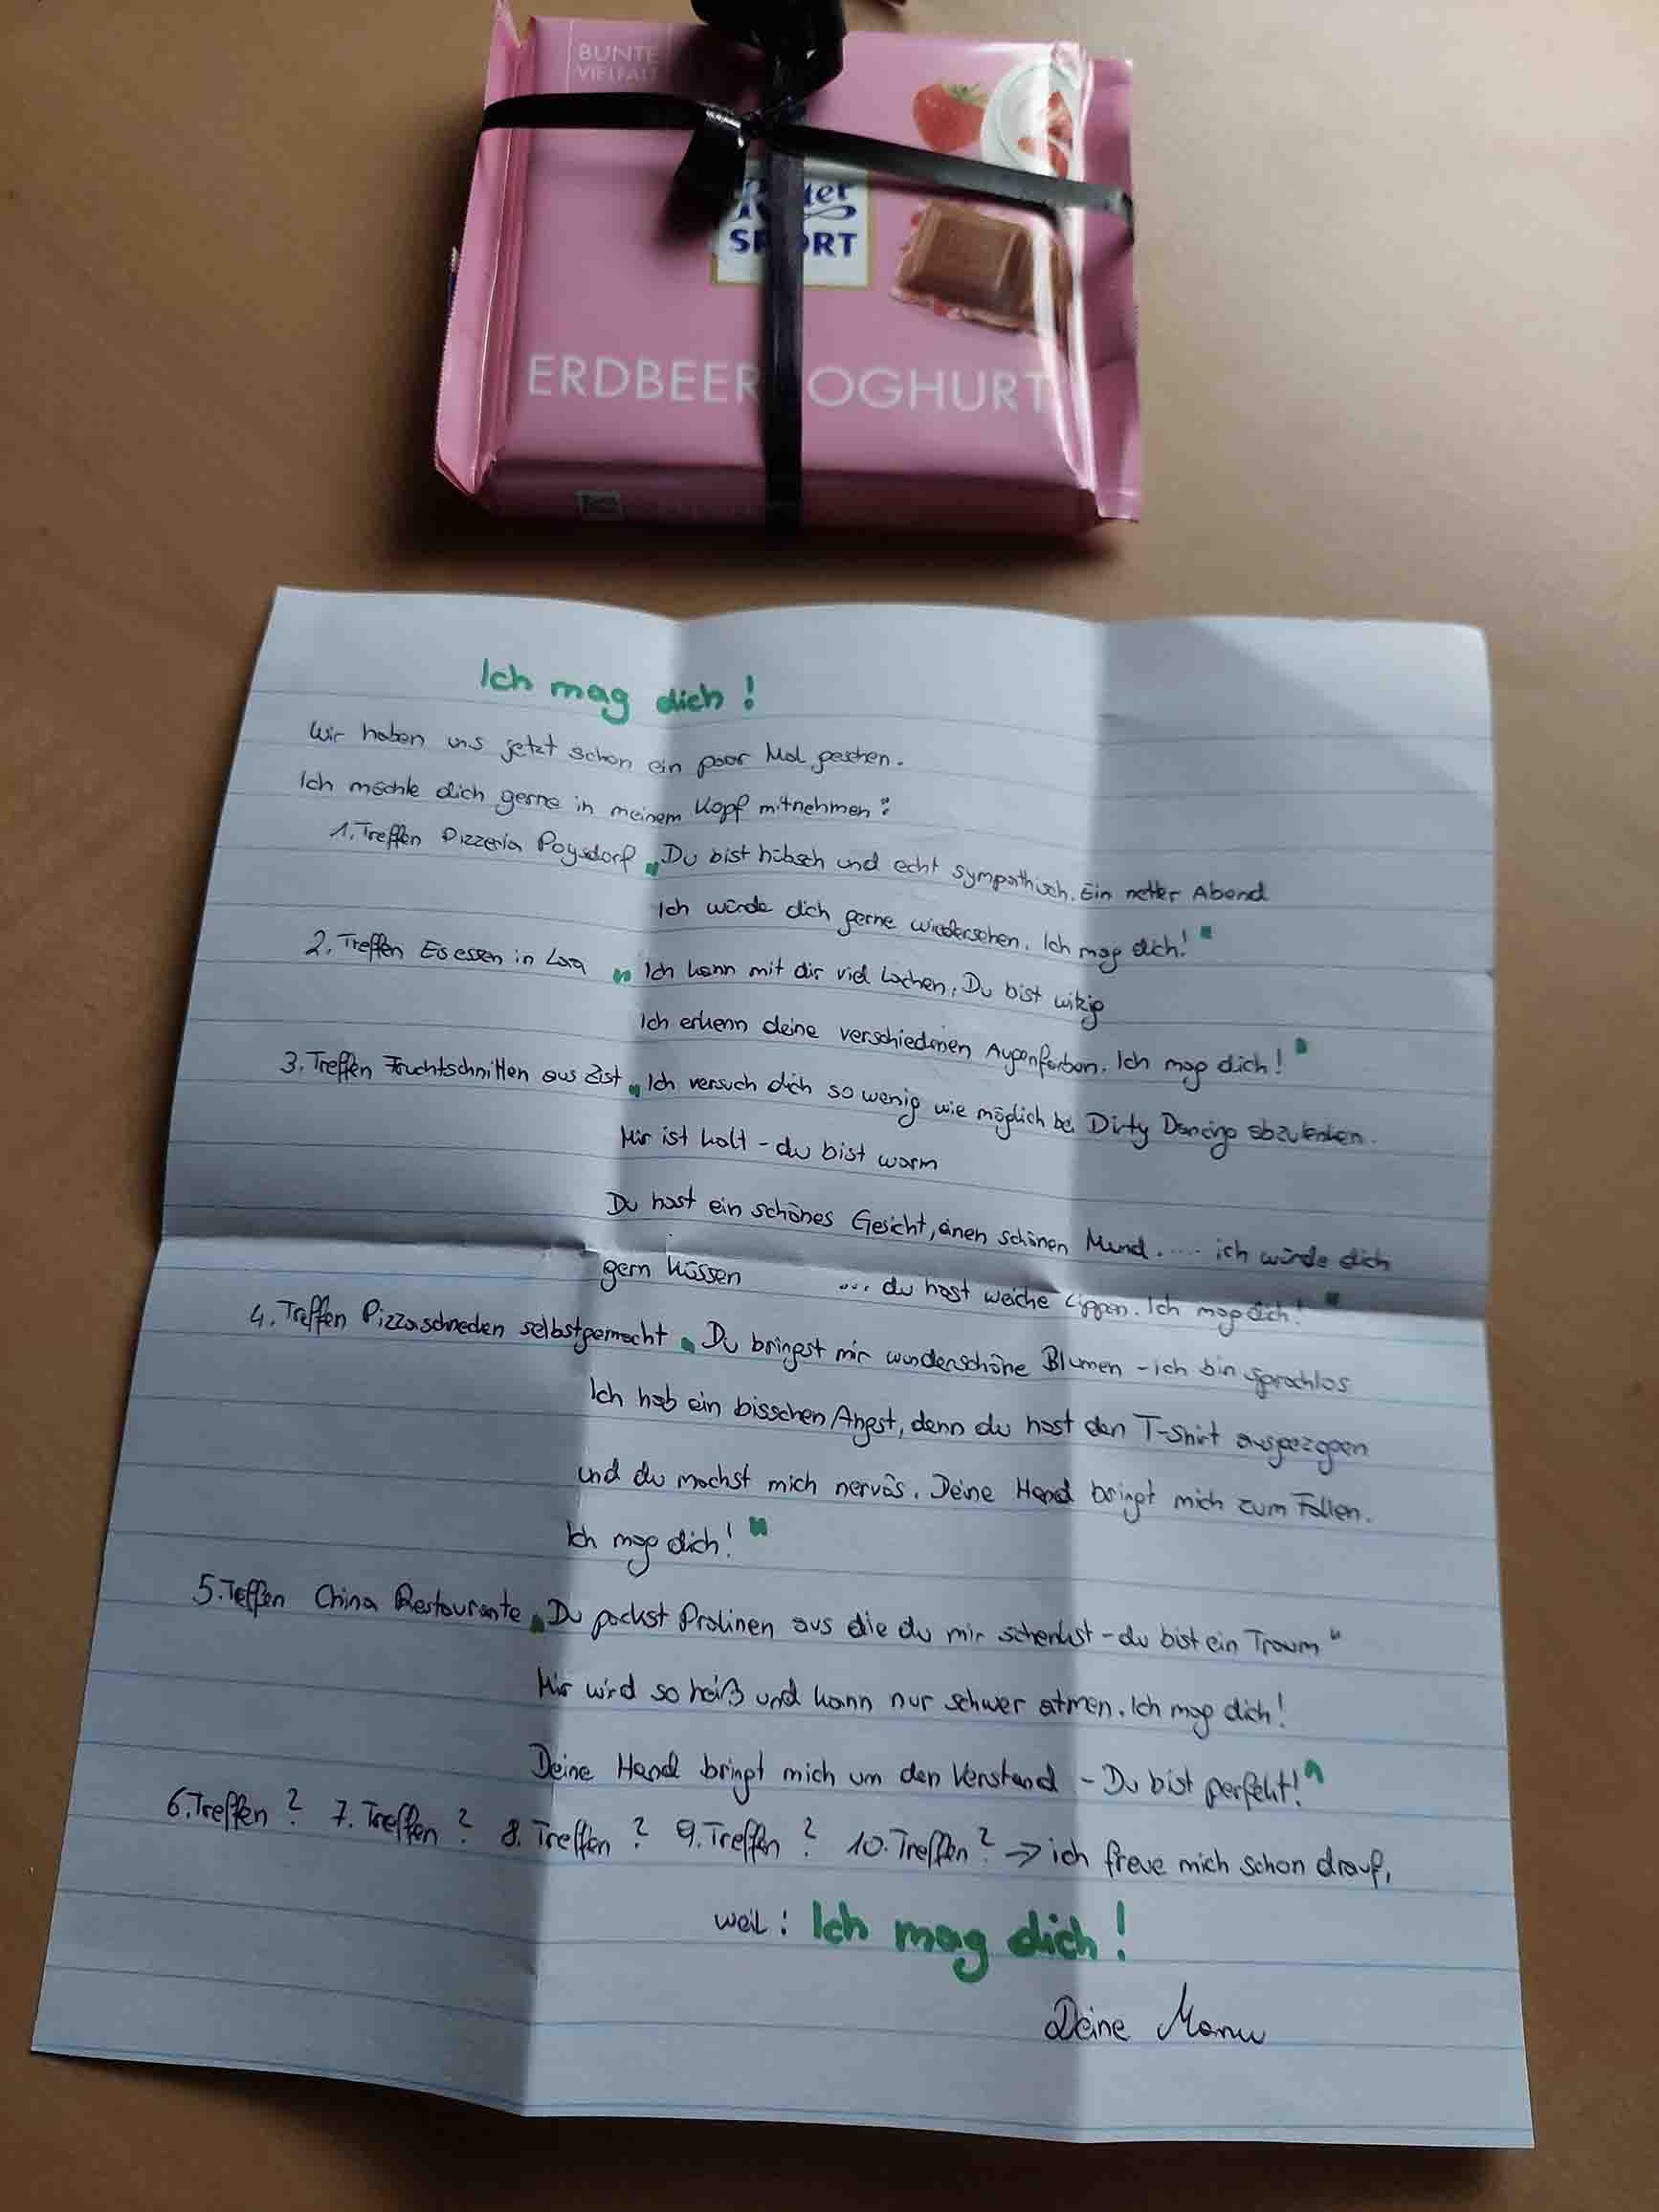 BUNTE
VIELFALT
Ritter
SPORT
ERDBEER JOGHURT
Ich mag dich!
Wir haben uns jetzt schon ein paar Mal gesehen.
Ich möchte dich gerne in meinem Kopf mitnehmen:
1. Treffen Pizzeria Poysdorf „Du bist hübsch und echt sympathisch. Ein netter Abend
Ich würde dich gerne wiedersehen. Ich mag dich!"
2. Treffen Eis essen in Laa „Ich kann mit dir viel Lachen, Du bist witzig
Ich erkenn deine verschiedenen Augenfarben. Ich mag dich!"
3. Treffen Fruchtschnitten aus Zist „Ich versuch dich so wenig wie möglich bei Dirty Dancing abzulenken.
Mir ist kalt - du bist warm
Du hast ein schönes Gesicht, einen schönen Mund ..... ich würde dich
gern küssen ... du hast weiche Lippen. Ich mag dich!"
4. Treffen Pizzaschnecken selbstgemacht „Du bringst mir wunderschöne Blumen - ich bin sprachlos
Ich hab ein bisschen Angst, denn du hast den T-Shirt ausgezogen
und du machst mich nervös. Deine Hand bringt mich zum Fallen.
Ich mag dich!"
5. Teffen China Restaurante „Du packst Pralinen aus die du mir schenkst - du bist ein Traum"
Mir wird so heiß und kann nur schwer atmen. Ich mag dich!
Deine Hand bringt mich um den Verstand - Du bist perfekt!"
6. Treffen ? 7. Treffen ? 8. Treffen ? 9. Treffen ? 10. Treffen ? → ich freue mich schon drauf,
weil : Ich mag dich!
Deine Manu